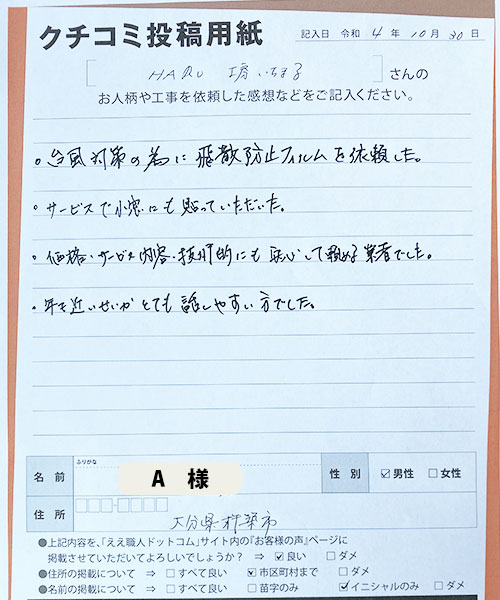 クチコミ投稿用紙
記入日 令和 4 年 10 月 30 日
[ HARU 工房いちまる ] さんの
お人柄や工事を依頼した感想などをご記入ください。
・台風対策の為に飛散防止フィルムを依頼した。
・サービスで小窓にも貼っていただいた。
・価格・サービス内容・技術的にも安心して頼める業者でした。
・年も近いせいかとても話しやすい方でした。
ふりがな
名前 A 様 性別 ☑男性 □女性
住所 大分県杵築市
●上記内容を、「ええ職人ドットコム」サイト内の『お客様の声』ページに
掲載させていただいてよろしいでしょうか? ⇒ ☑良い □ダメ
●住所の掲載について ⇒ □すべて良い ☑市区町村まで □ダメ
●名前の掲載について ⇒ □すべて良い □苗字のみ ☑イニシャルのみ □ダメ